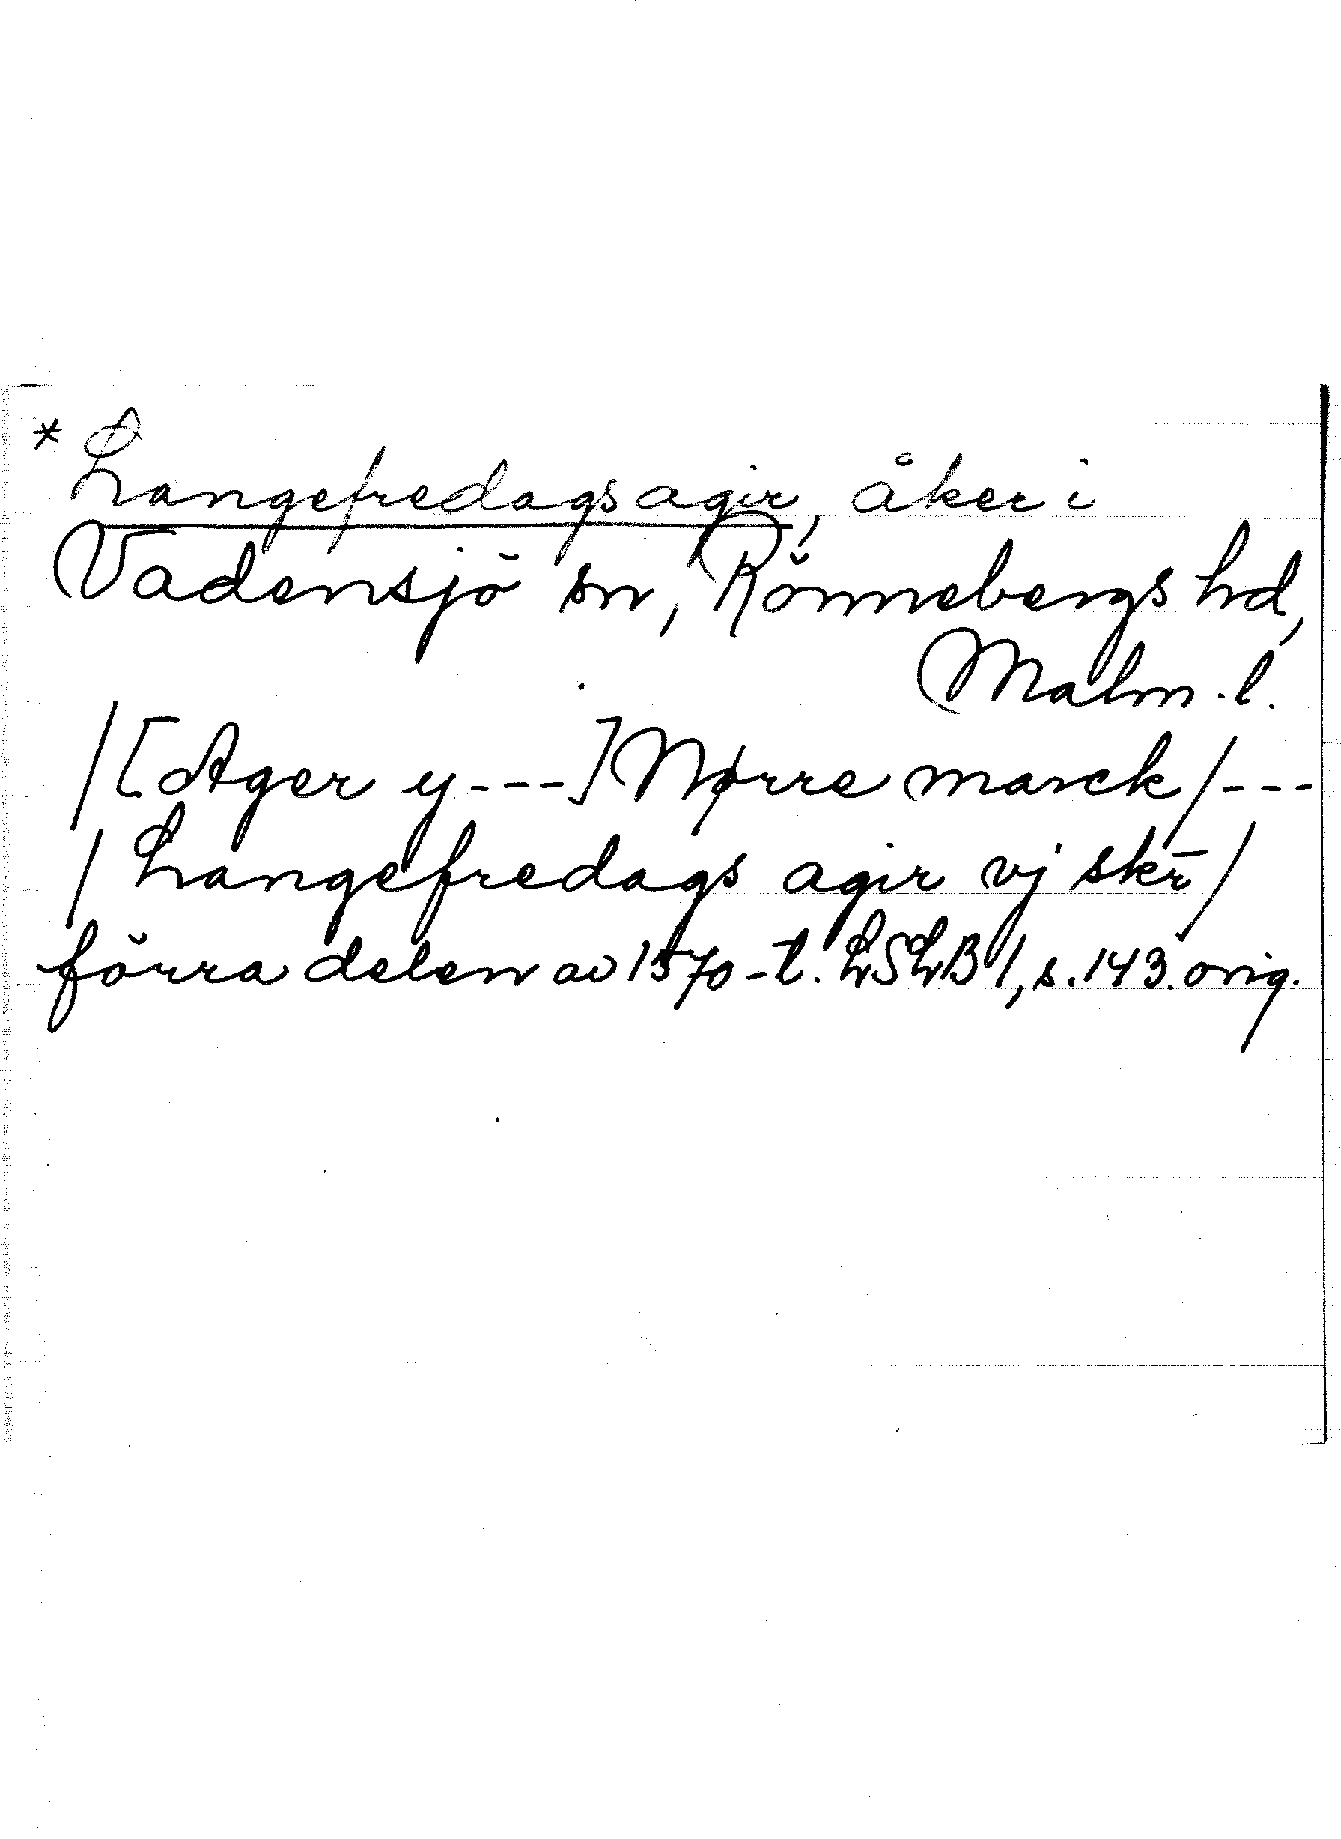 * Langefredags agir, åker i
Vadensjö sn, Rönnebergs hd,
Malm. l.
/[Ager y---] Nørre marck/---
/Langefredags agir vj skr̄/
förra delen av 1570-t. LSLB 1, s. 143. orig.